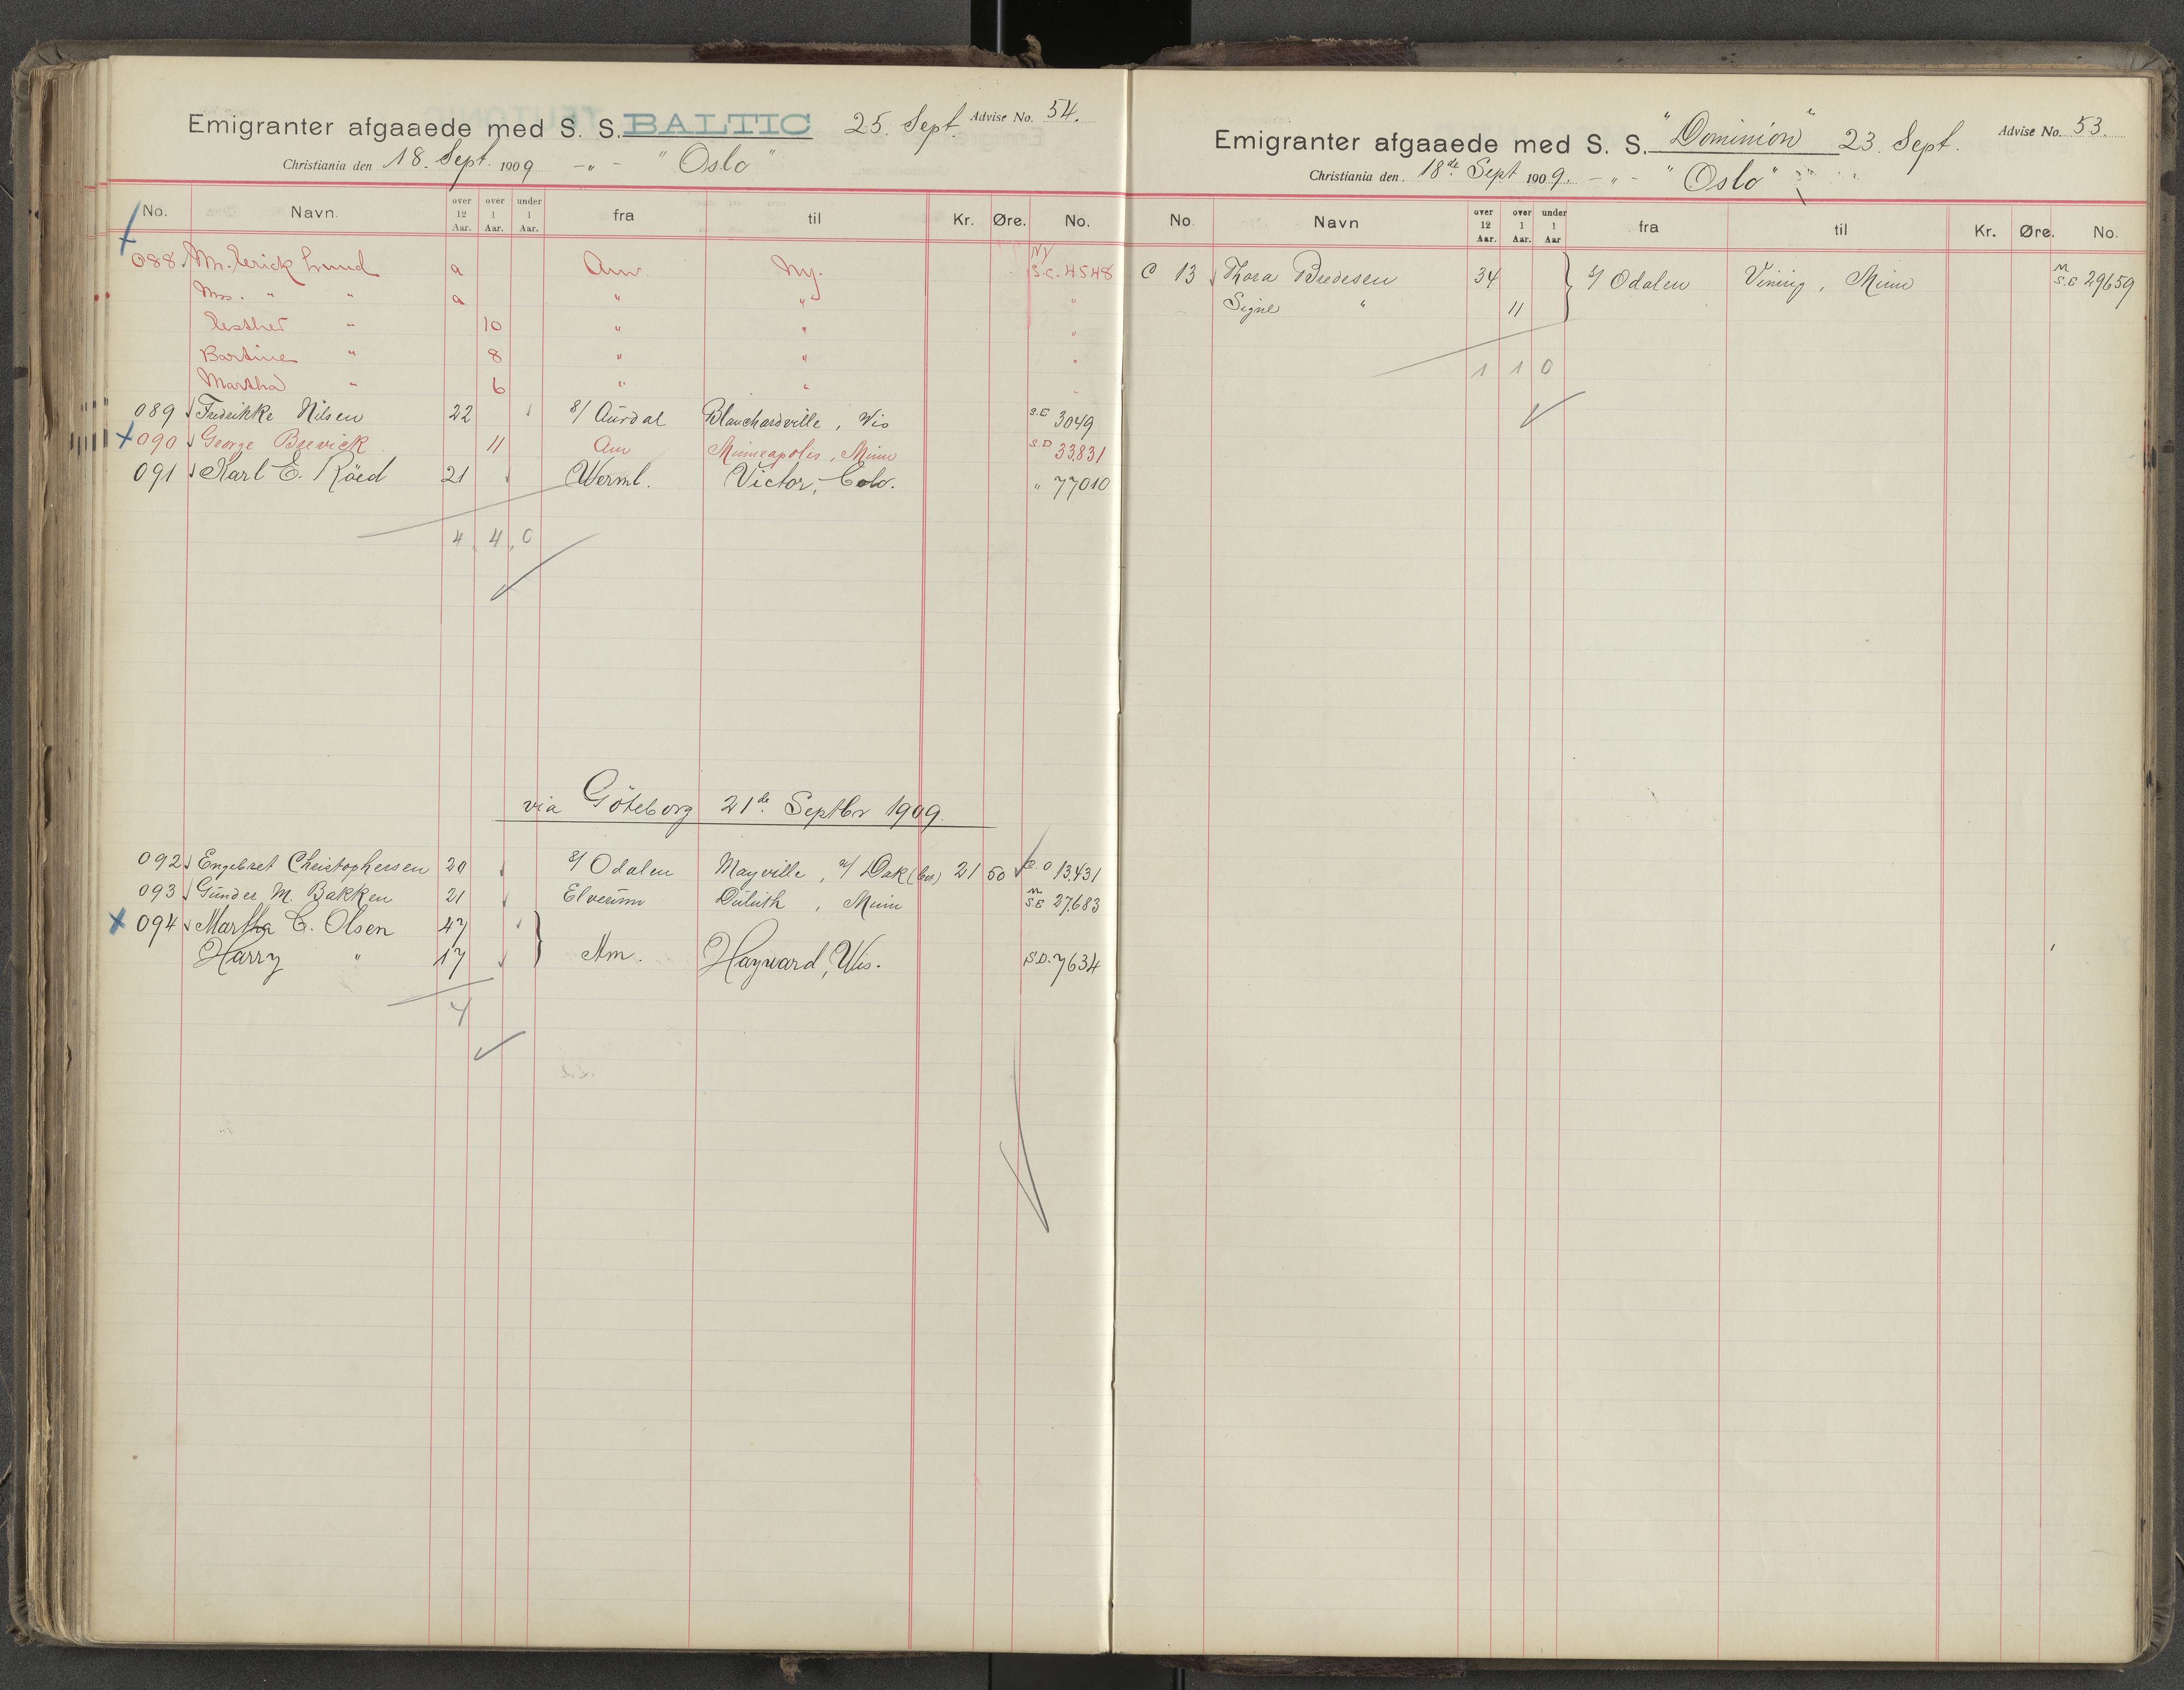 Emigranter afgaaede med S. S. BALTIC 25. Sept. Advise No. 54.
Christiania den 18. Sept. 1909 -„- "Oslo"
No. Navn. over 12 Aar. over 1 Aar. under 1 Aar. fra til Kr. Øre. No.
088. Mr. Lund a Am. Ny. NY S.C. 4548
Mrs. " " a " " "
" 10 " " "
Bartine " 8 " " "
Martha " 6 " " "
089 Fredrikke Nilsen 22 S/ Aurdal Blanchardville, Wis S.E 3049
090 George Brevick 11 Am Minneapolis, Minn S.D 33831
091 Karl E. Röed 21 Werml. Victor, Colo. " 77010
4 4 0
via Göteborg 21de Septbr 1909.
092 Engebret Christophersen 20 S/ Odalen Mayville, N/ Dak 21 50 13431
093 Gunder M. Bakken 21 Elverum Duluth, Minn M S.E 27683
094 Martha C. Olsen 47
Harry " 17 Am. Hayward, Wis. S.D. 7634
4
Emigranter afgaaede med S. S. "Dominion" 23. Sept. Advise No. 53.
Christiania den 18de Sept 1909. -„- "Oslo"
No. Navn over 12 Aar. over 1 Aar. under 1 Aar fra til Kr. Øre. No.
C 13 Thora Bredesen 34 S/ Odalen Vining, Minn M S.E 29659
Signe " 11
1 1 0